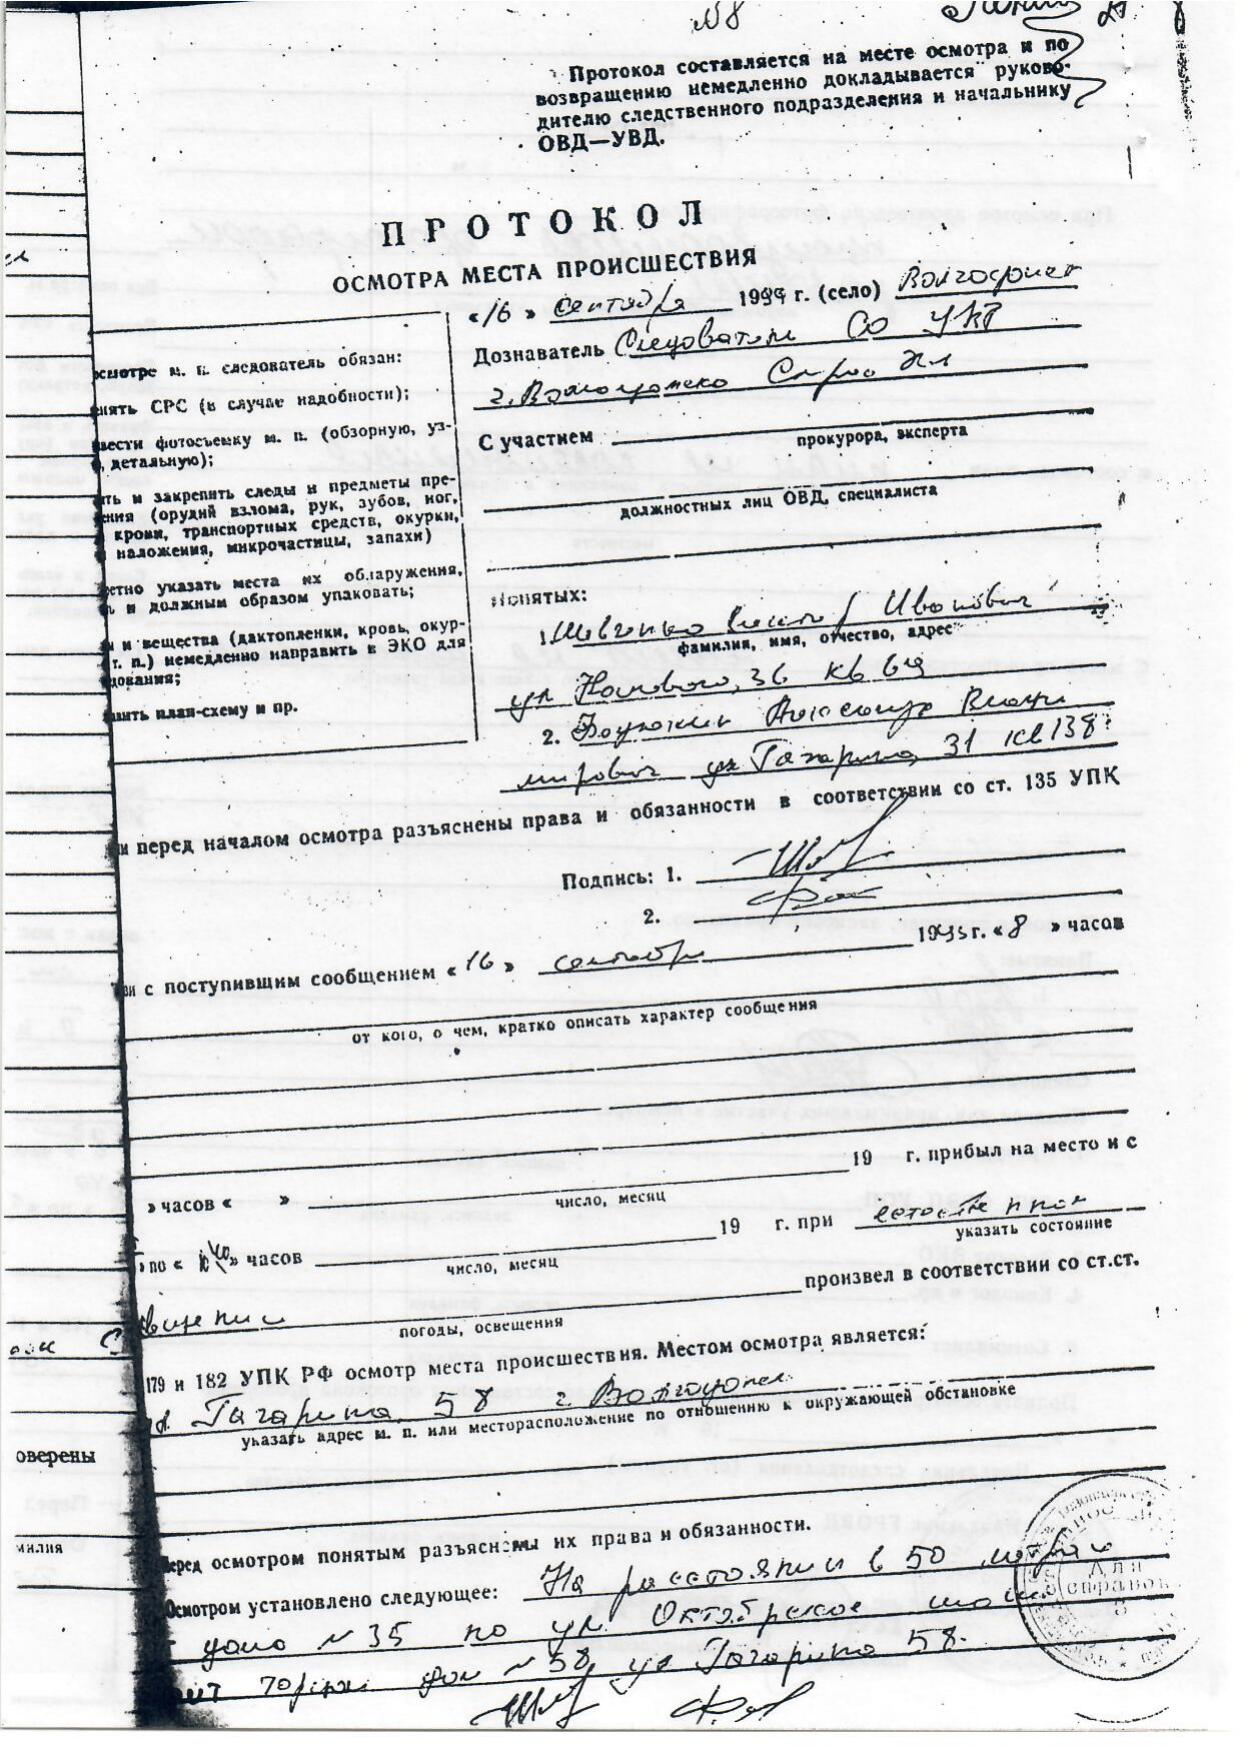 №8
Протокол составляется на месте осмотра и по
возвращению немедленно докладывается руково-
дителю следственного подразделения и начальнику
ОВД—УВД.
ПРОТОКОЛ
ОСМОТРА МЕСТА ПРОИСШЕСТВИЯ
«16» сентября 1999 г. (село) Волгодонск
Дознаватель Следователь СО УВД
г. Волгодонска
С участием
прокурора, эксперта
должностных лиц ОВД, специалиста
осмотре м. п. следователь обязан:
нять СРС (в случае надобности);
вести фотосъемку м. п. (обзорную, уз-
, детальную);
ть и закрепить следы и предметы пре-
ения (орудий взлома, рук, зубов, ног,
крови, транспортных средств, окурки,
наложения, микрочастицы, запахи)
етно указать места их обнаружения,
ь и должным образом упаковать;
ы и вещества (дактопленки, кровь, окур-
т. п.) немедленно направить в ЭКО для
дования;
авить план-схему и пр.
Понятых:
1. Шевченко Виктор Иванович
фамилия, имя, отчество, адрес
ул 36 кв 69
2. Александр Влади
мирович ул Гагарина, 31 кв 138
и перед началом осмотра разъяснены права и обязанности в соответствии со ст. 135 УПК
Подпись: 1.
2.
зи с поступившим сообщением «16» сентября 199 г. «8» часов
от кого, о чем, кратко описать характер сообщения
19 г. прибыл на место и с
» часов « »
число, месяц
19 г. при естественном
указать состояние
» по « » часов
число, месяц
произвел в соответствии со ст.ст.
освещении
погоды, освещения
179 и 182 УПК РФ осмотр места происшествия. Местом осмотра является:
ул. Гагарина 58 г. Волгодонск
указать адрес м. п. или месторасположение по отношению к окружающей обстановке
оверены
милия
Перед осмотром понятым разъяснены их права и обязанности.
Осмотром установлено следующее: На расстоянии в 50 метрах
дома №35 по ул. Октябрьское шоссе
дом №58 ул Гагарина 58.
Для
справок